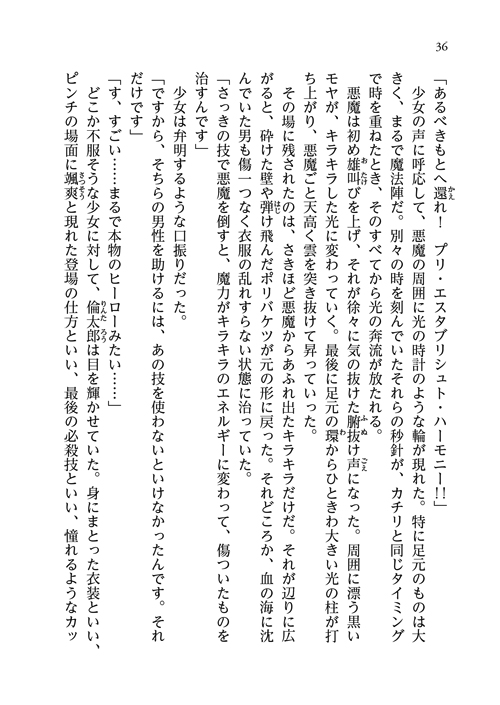 36
「あるべきもとへ還れ！　プリ・エスタブリシュト・ハーモニー!!」
　少女の声に呼応して、悪魔の周囲に光の時計のような輪が現れた。特に足元のものは大
きく、まるで魔法陣だ。別々の時を刻んでいたそれらの秒針が、カチリと同じタイミング
で時を重ねたとき、そのすべてから光の奔流が放たれる。
　悪魔は初め雄叫びを上げ、それが徐々に気の抜けた腑抜け声になった。周囲に漂う黒い
モヤが、キラキラした光に変わっていく。最後に足元の環からひときわ大きい光の柱が打
ち上がり、悪魔ごと天高く雲を突き抜けて昇っていった。
　その場に残されたのは、さきほど悪魔からあふれ出たキラキラだけだ。それが辺りに広
がると、砕けた壁や弾け飛んだポリバケツが元の形に戻った。それどころか、血の海に沈
んでいた男も傷一つなく衣服の乱れすらない状態に治っていた。
「さっきの技で悪魔を倒すと、魔力がキラキラのエネルギーに変わって、傷ついたものを
治すんです」
　少女は弁明するような口振りだった。
「ですから、そちらの男性を助けるには、あの技を使わないといけなかったんです。それ
だけです」
「す、すごい……まるで本物のヒーローみたい……」
　どこか不服そうな少女に対して、倫太郎は目を輝かせていた。身にまとった衣装といい、
ピンチの場面に颯爽と現れた登場の仕方といい、最後の必殺技といい、憧れるようなカッ